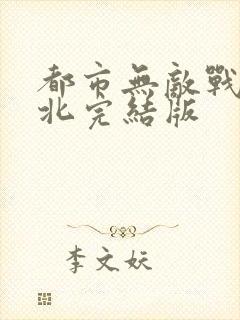 都市無敵戰
北完結版
李文妖